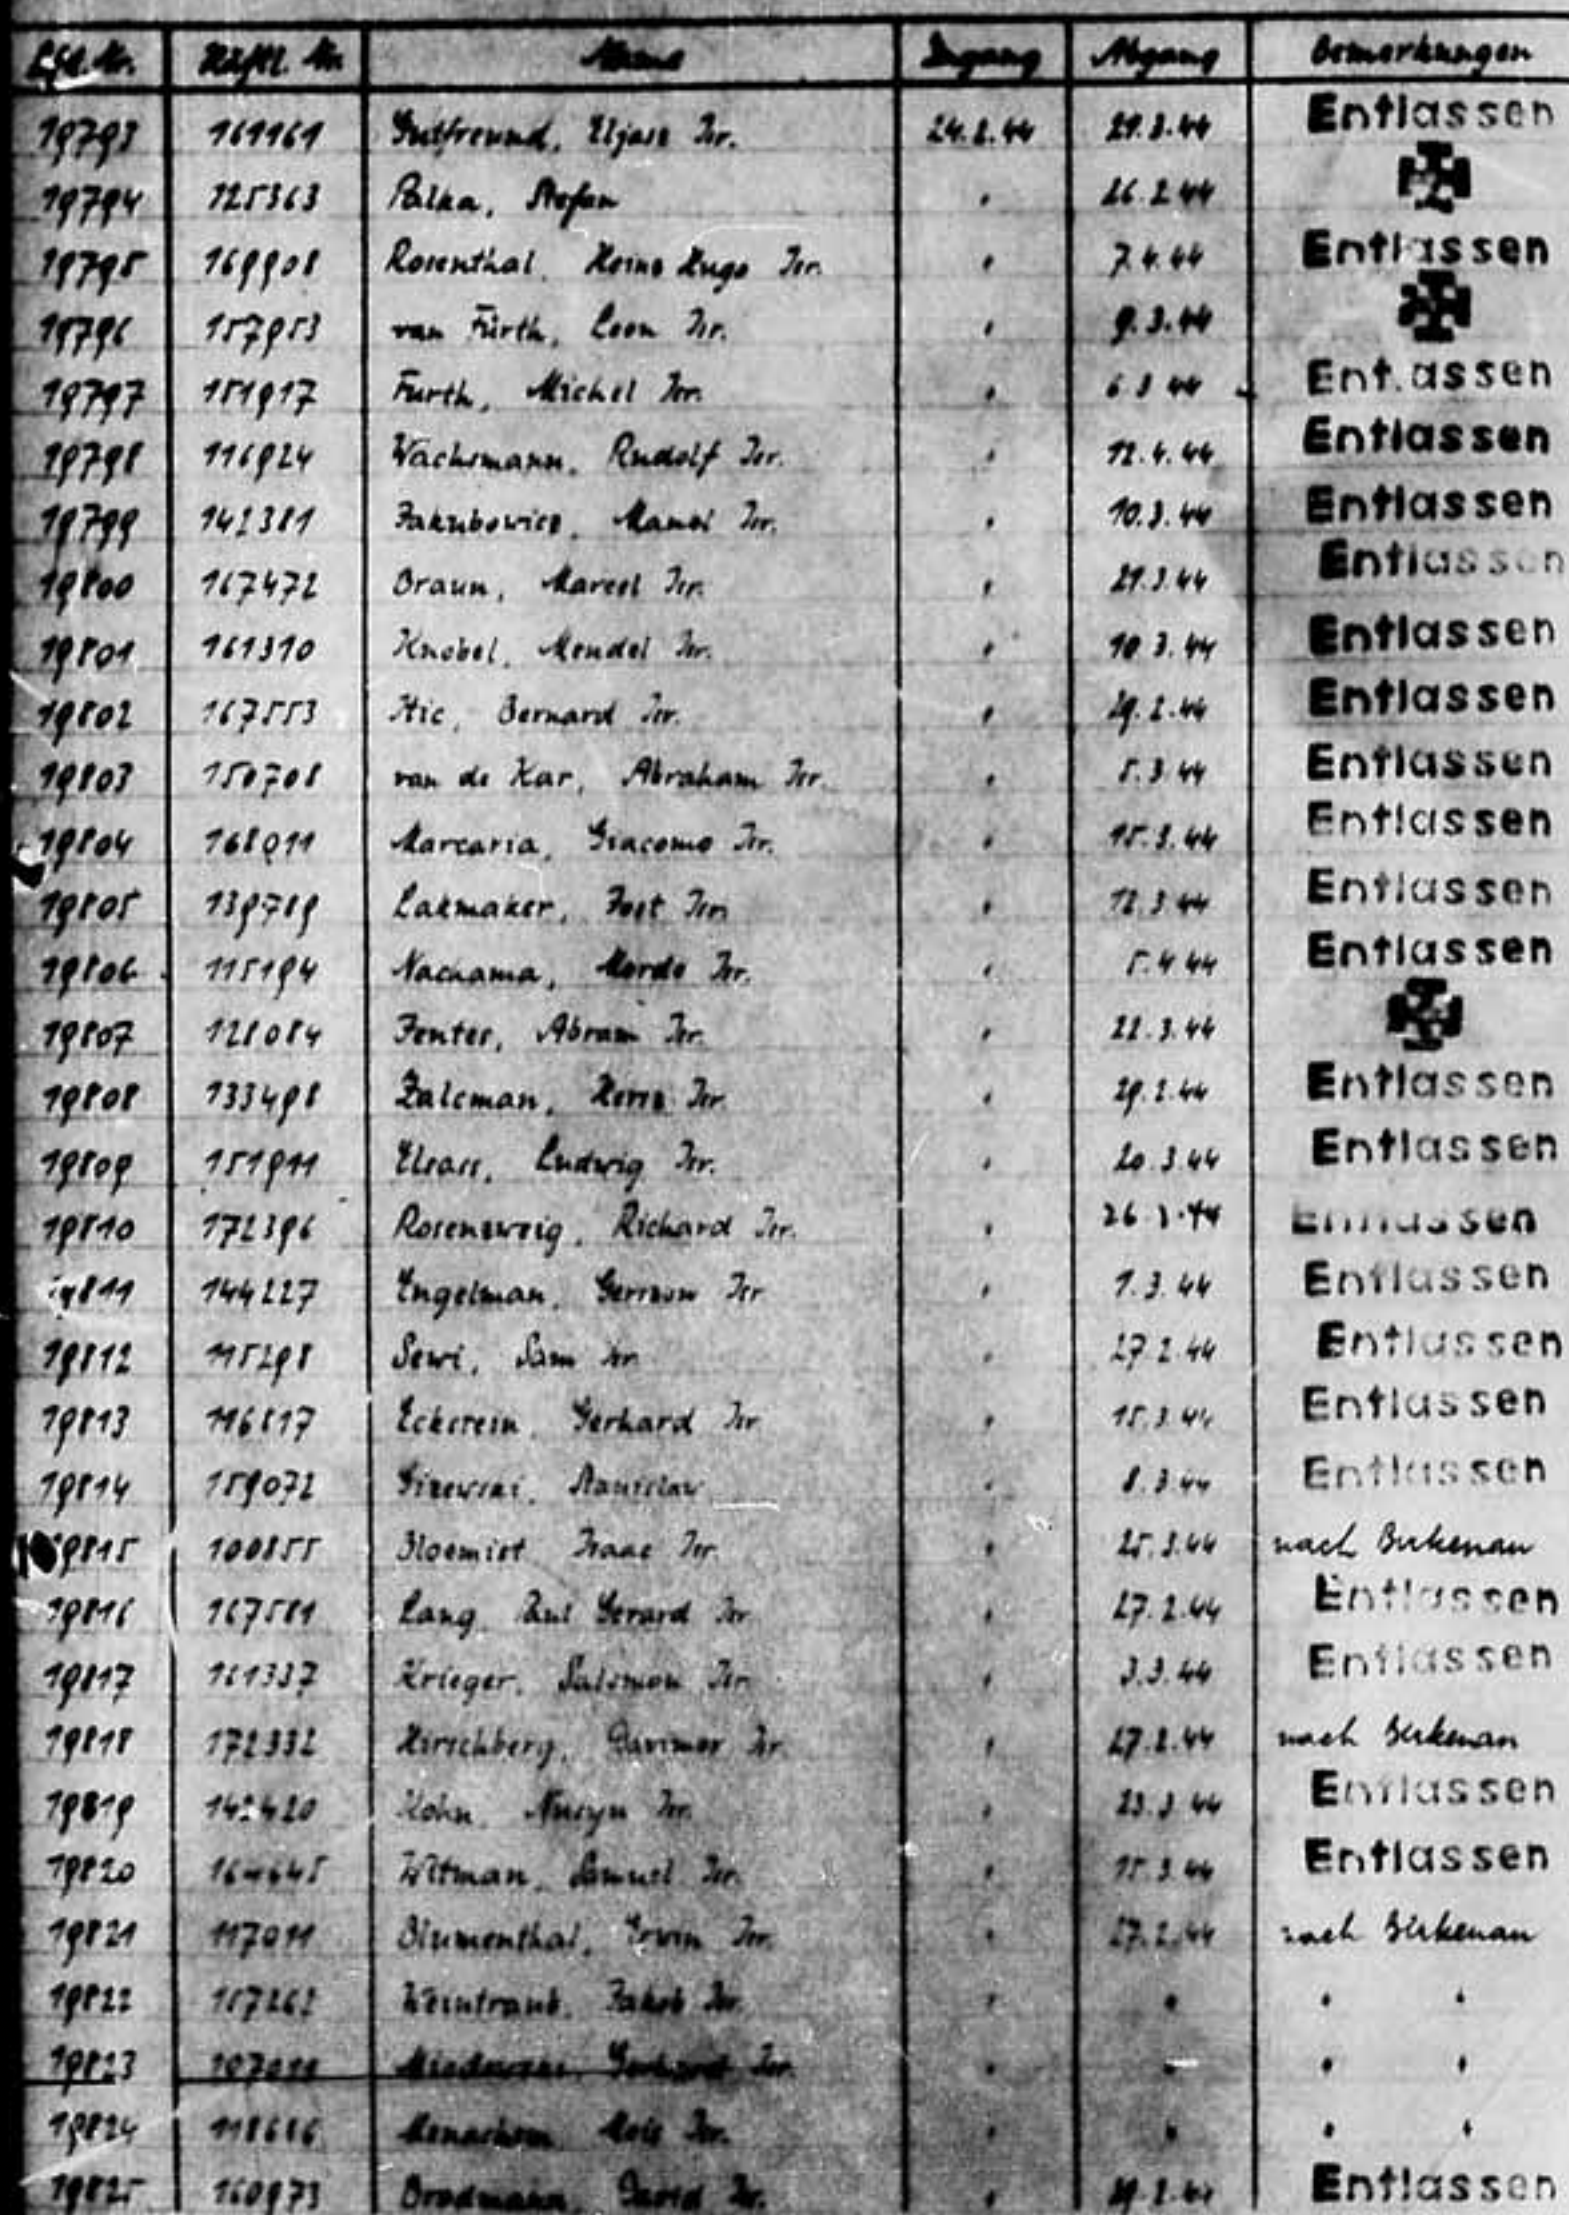 Lfd. Nr. Häftl. Nr. Name Zugang Abgang Bemerkungen
19793 161161 Gutfreund, Eljasz Isr. 24.2.44 21.3.44 Entlassen
19794 125363 Palka, Stefan " 26.2.44
19795 169908 Rosenthal, Heinz Hugo Isr. " 7.4.44 Entlassen
19796 157953 van Fürth, Leon Isr. " 9.3.44
19797 151917 Fürth, Michel Isr. " 6.3.44 Entlassen
19798 116924 Wachsmann, Rudolf Isr. " 12.4.44 Entlassen
19799 142381 Jakubowicz, Isr. " 10.3.44 Entlassen
19800 167472 Braun, Marcel Isr. " 21.3.44 Entlassen
19801 161310 Knobel, Mendel Isr. " 10.3.44 Entlassen
19802 167553 Hic, Bernard Isr. " 29.2.44 Entlassen
19803 150708 van de Kar, Abraham Isr. " 5.3.44 Entlassen
19804 168011 Marcaria, Giacomo Isr. " 15.3.44 Entlassen
19805 139789 Lakmaker, Isr. " 12.3.44 Entlassen
19806 115194 Nachama, Mordo Isr. " 5.4.44 Entlassen
19807 128084 Fenter, Abram Isr. " 22.3.44
19808 133498 Zalcman, Isr. " 29.2.44 Entlassen
19809 151911 Elsass, Ludwig Isr. " 20.3.44 Entlassen
19810 172396 Rosenzweig, Richard Isr. " 26.3.44 Entlassen
19811 144227 Engelman, Gerszon Isr. " 1.3.44 Entlassen
19812 115298 Sewi, Sam Isr. " 27.2.44 Entlassen
19813 116817 Eckstein, Gerhard Isr. " 15.3.44 Entlassen
19814 159072 Stanislaw " 8.3.44 Entlassen
19815 100855 Bloemist Isaac Isr. " 25.3.44 nach Birkenau
19816 167581 Lang Paul Gerard Isr. " 27.2.44 Entlassen
19817 161337 Krieger, Salomon Isr. " 3.3.44 Entlassen
19818 172332 Hirschberg, Isr. " 27.2.44 nach Birkenau
19819 142420 Kohn Nusyn Isr. " 23.3.44 Entlassen
19820 Witman, Samuel Isr. " 15.3.44 Entlassen
19821 117011 Blumenthal, Erwin Isr. " 27.2.44 nach Birkenau
19822 Weintraub, Jakob Isr. " " " "
19823 Gerhard Isr. " " " "
19824 Isr. " " " "
19825 160973 Brodmann, David Isr. " Entlassen